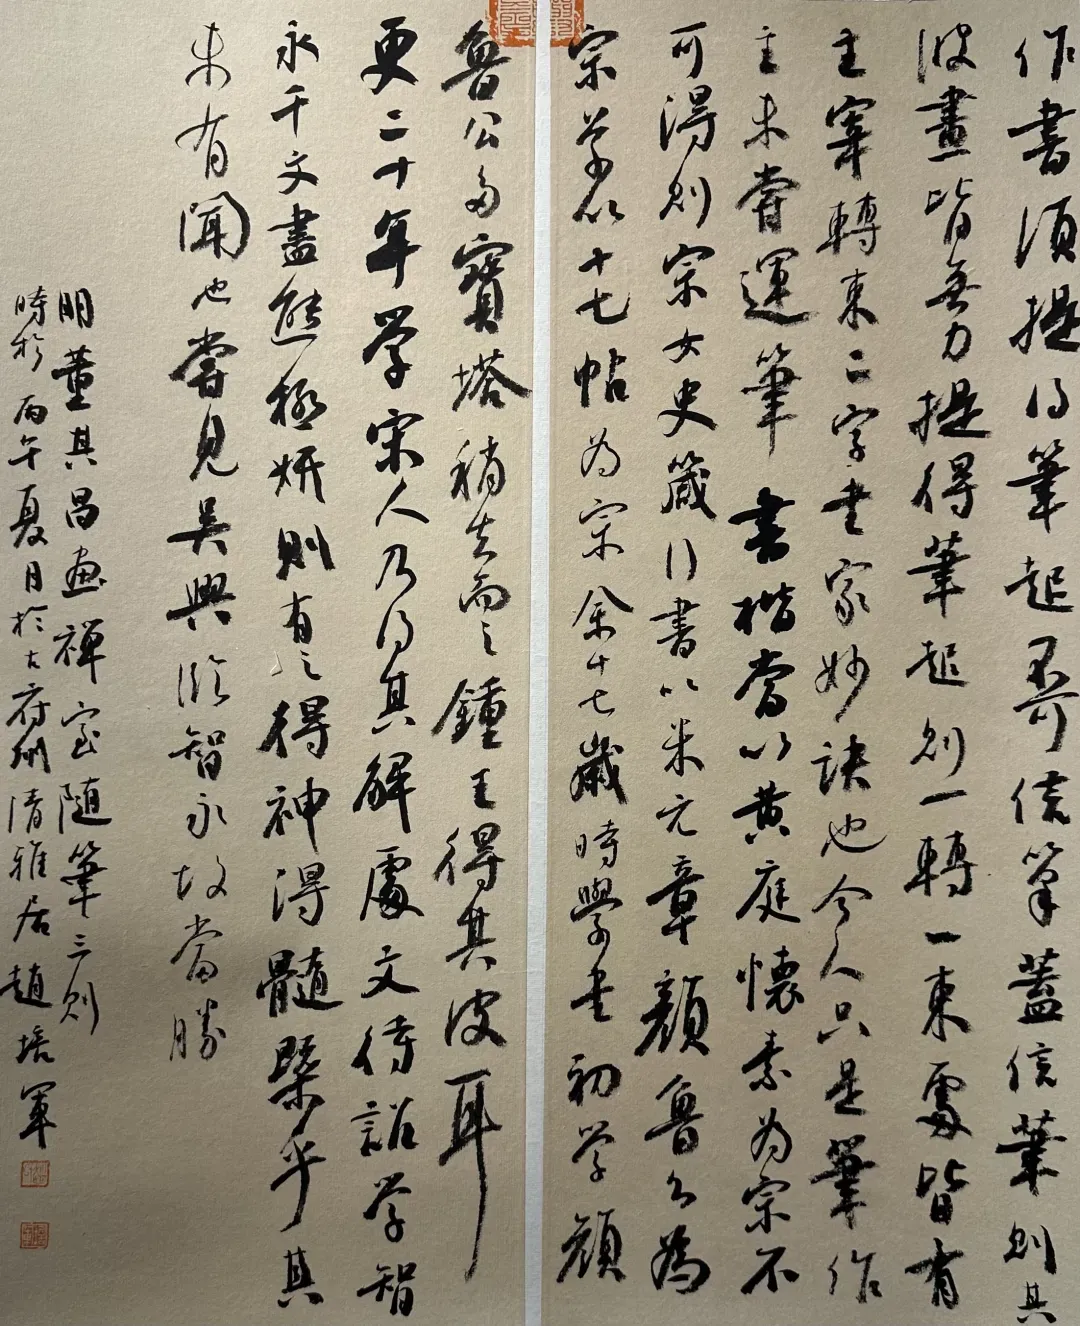 作書須提得筆起不可信筆蓋信筆則其
波畫皆無力提得筆起則一轉一束處皆有
主宰轉束二字書家妙訣也今人只是筆作
主未嘗運筆書楷當以黄庭懷素為宗不
可得則宗女史箴行書以米元章顔魯公為
宗草以十七帖為宗余十七歲時學書初学顔
魯公多寳塔稍去而之鍾王得其皮耳
更二十年学宋人乃得其解處文待詔学智
永千文盡態極妍則有之得神得髓槩乎其
未有聞也嘗見吳興臨智永故當勝
明董其昌画禅室随筆三則
時於丙午夏月於古府州清雅居趙培軍